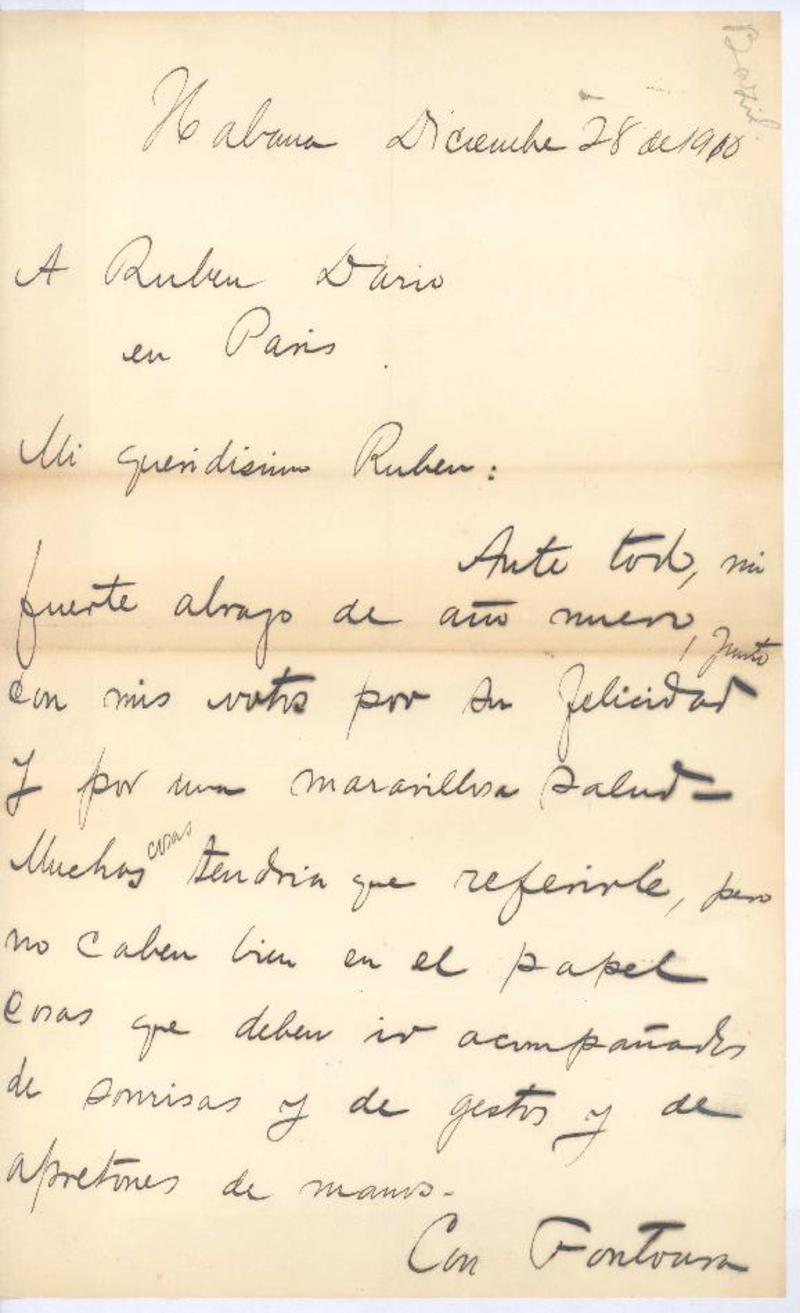 Brazil.
Habana Diciembre 28 de 1910
A Ruben Dario
en Paris
Mi queridisimo Ruben:
Ante todo, mi
fuerte abrazo de año nuevo, junto
con mis votos por su felicidad
y por una maravillosa salud—
Muchas cosas tendria que referirle, pero
no caben bien en el papel
cosas que deben ir acompañadas
de sonrisas y de gestos y de
apretones de manos.-
Con Fontoura